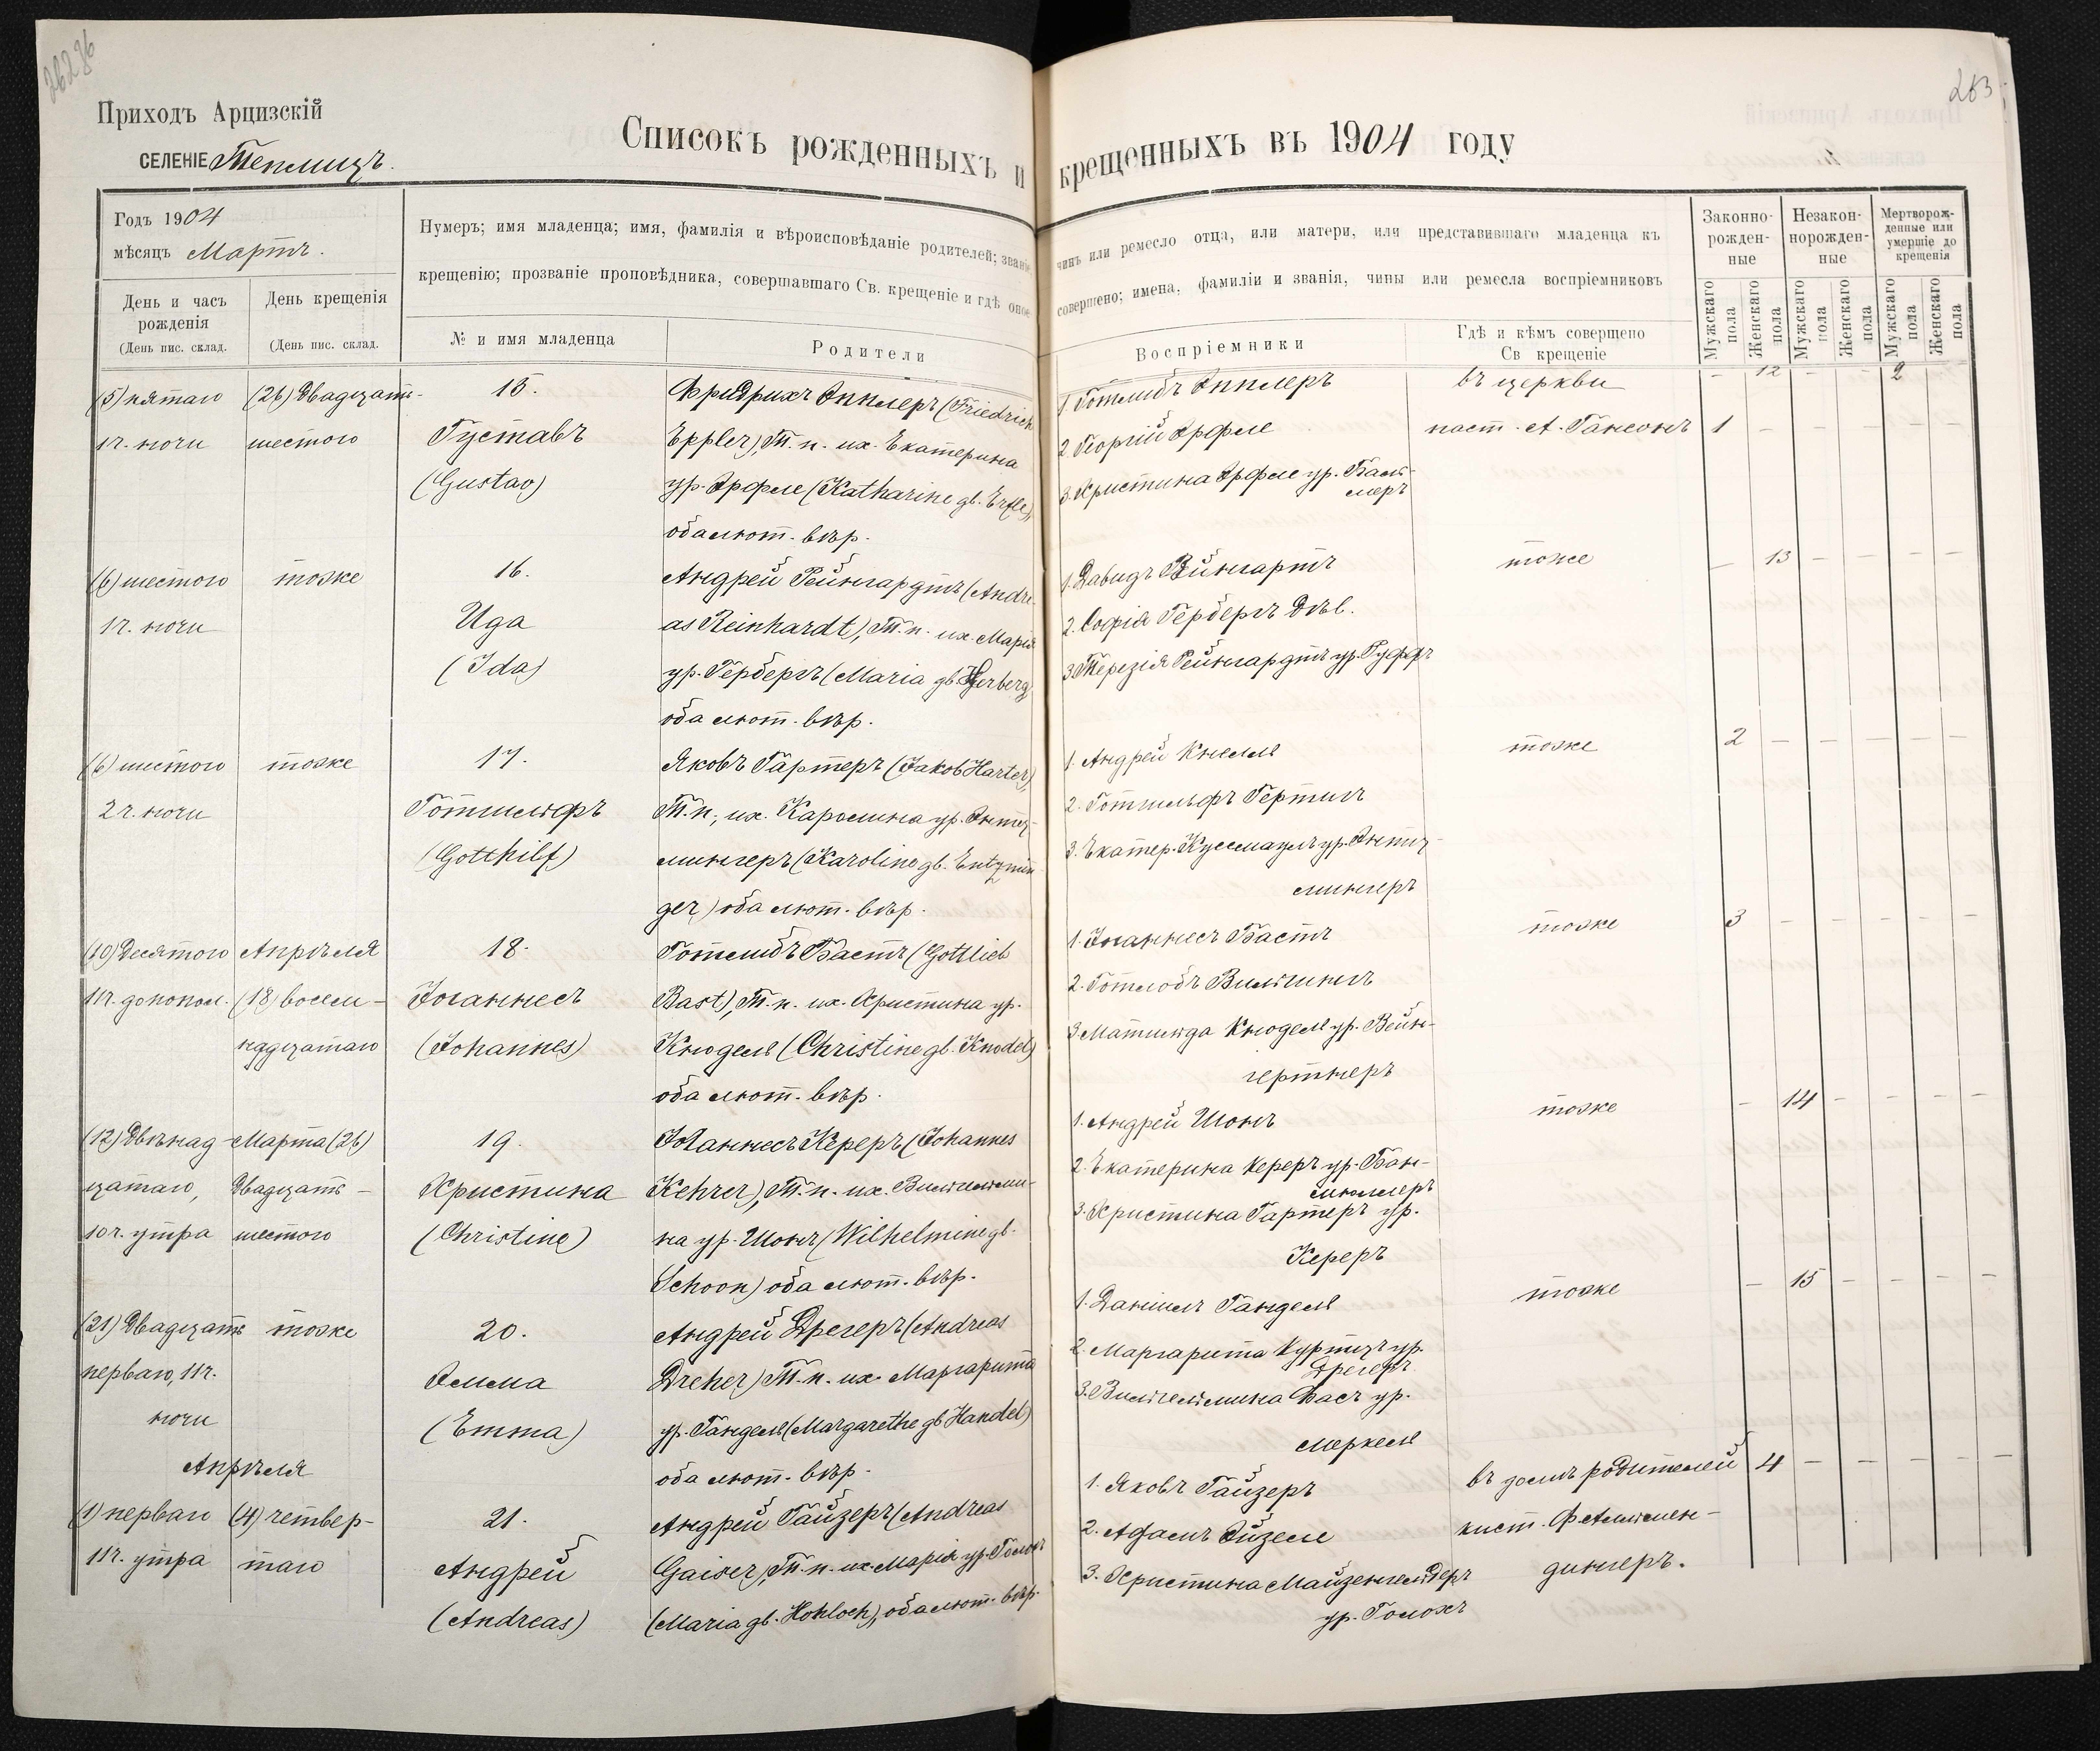 263
Приходъ Арцизскій
СЕЛЕНІЕ Теплицъ.
Списокъ рожденныхъ и крещенныхъ въ 1904 году
Годъ 1904
мѣсяцъ Мартъ.
День и часъ рожденія
(День пис. склад.
День крещенія
(День пис. склад.
Нумеръ; имя младенца; имя, фамилія и вѣроисповѣданіе родителей; званіе,
чинъ или ремесло отца, или матери, или представившаго младенца къ
крещенію; прозваніе проповѣдника, совершавшаго Св. крещеніе и гдѣ оное
совершено; имена, фамиліи и званія, чины или ремесла воспріемниковъ
№ и имя младенца
Родители
Воспріемники
Гдѣ и кѣмъ совершено
Св крещеніе
Законно-
рожден-
ные
Незакон-
норожден-
ные
Мертворож-
денные или
умершіе до
крещенія
Мужскаго пола
Женскаго пола
Мужскаго пола
Женскаго пола
Мужскаго пола
Женскаго пола
— 12 — — 2
(5) пятаго
1 ч. ночи
(26) двадцать-
шестого
15.
Густавъ
(Gustav)
Фридрихъ Эпплеръ (Friedrich
Eppler), Т. п. их. Екатерина
ур. Эрфле (Katharine gb. Erfle),
оба лют. вѣр.
1. Готлибъ Эпплеръ
2. Георгій Эрфле
3. Христина Эрфле ур. Баль-
меръ
въ церкви
паст. А. Гансонъ
1 — — — — —
(6) шестого
1 ч. ночи
тоже
16.
Ида
(Ida)
Андрей Рейнгардтъ (Andre-
as Reinhardt), Т. п. их. Марія
ур. Гербергъ (Maria gb. Herberg
оба лют. вѣр.
1. Давидъ Вейнгартъ
2. Софія Гербергъ дѣв.
3. Терезія Рейнгардтъ ур. Руффъ
тоже
— 13 — — — —
(6) шестого
2 ч. ночи
тоже
17.
Готгильфъ
(Gotthilf)
Яковъ Гартеръ (Jakob Harter),
Т. п., их. Каролина ур. Энтц-
мингеръ (Karoline gb. Entzmin
ger) оба лют. вѣр.
1. Андрей Кнелль
2. Готгильфъ Гертигъ
3. Екатер. Куссмауль ур. Энтц-
мингеръ
тоже
2 — — — — —
(10) десятого
11 ч. до попол.
Апрѣля
(18) восем-
надцатаго
18.
Іоганнесъ
(Johannes)
Готлибъ Бастъ (Gottlieb
Bast), Т. п. их. Христина ур.
Кнодель (Christine gb. Knodel)
оба лют. вѣр.
1. Іоганнесъ Бастъ
2. Готлобъ Вильгинъ
3. Матильда Кнодель ур. Вейн-
гертнеръ
тоже
3 — — — — —
(12) двѣнад-
цатаго,
10 ч. утра
Марта (26)
двадцать-
шестого
19.
Христина
(Christine)
Іоганнесъ Кереръ (Johannes
Kehrer), Т. п. их. Вильгельми-
на ур. Шонъ (Wilhelmine gb.
Schoon) оба лют. вѣр.
1. Андрей Шонъ
2. Екатерина Кереръ ур. Бан-
мюллеръ
3. Христина Гартеръ ур.
Кереръ
тоже
— 14 — — — —
(21) двадцать
перваго, 11 ч.
ночи
тоже
20.
Эмма
(Emma)
Андрей Дрегеръ (Andreas
Dreher) Т. п. их. Маргарита
ур. Гандель (Margarethe gb Handel)
оба лют. вѣр.
1. Даніилъ Гандель
2. Маргарита Куртцъ ур.
Дрегеръ
3. Вильгельмина Фасъ ур.
Меркель
тоже
— 15 — — — —
Апрѣля
(1) перваго
11 ч. утра
(4) четвер-
таго
21.
Андрей
(Andreas)
Андрей Гайзеръ (Andreas
Gaiser), Т. п. их. Марія ур. Голохъ
(Maria gb. Hohloch), оба лют. вѣр.
1. Яковъ Гайзеръ
2. Адамъ Эйзеле
3. Христина Майзенгельдеръ
ур. Голохъ
въ домѣ родителей
кист. Ф. Альмен-
дингеръ.
4 — — — — —